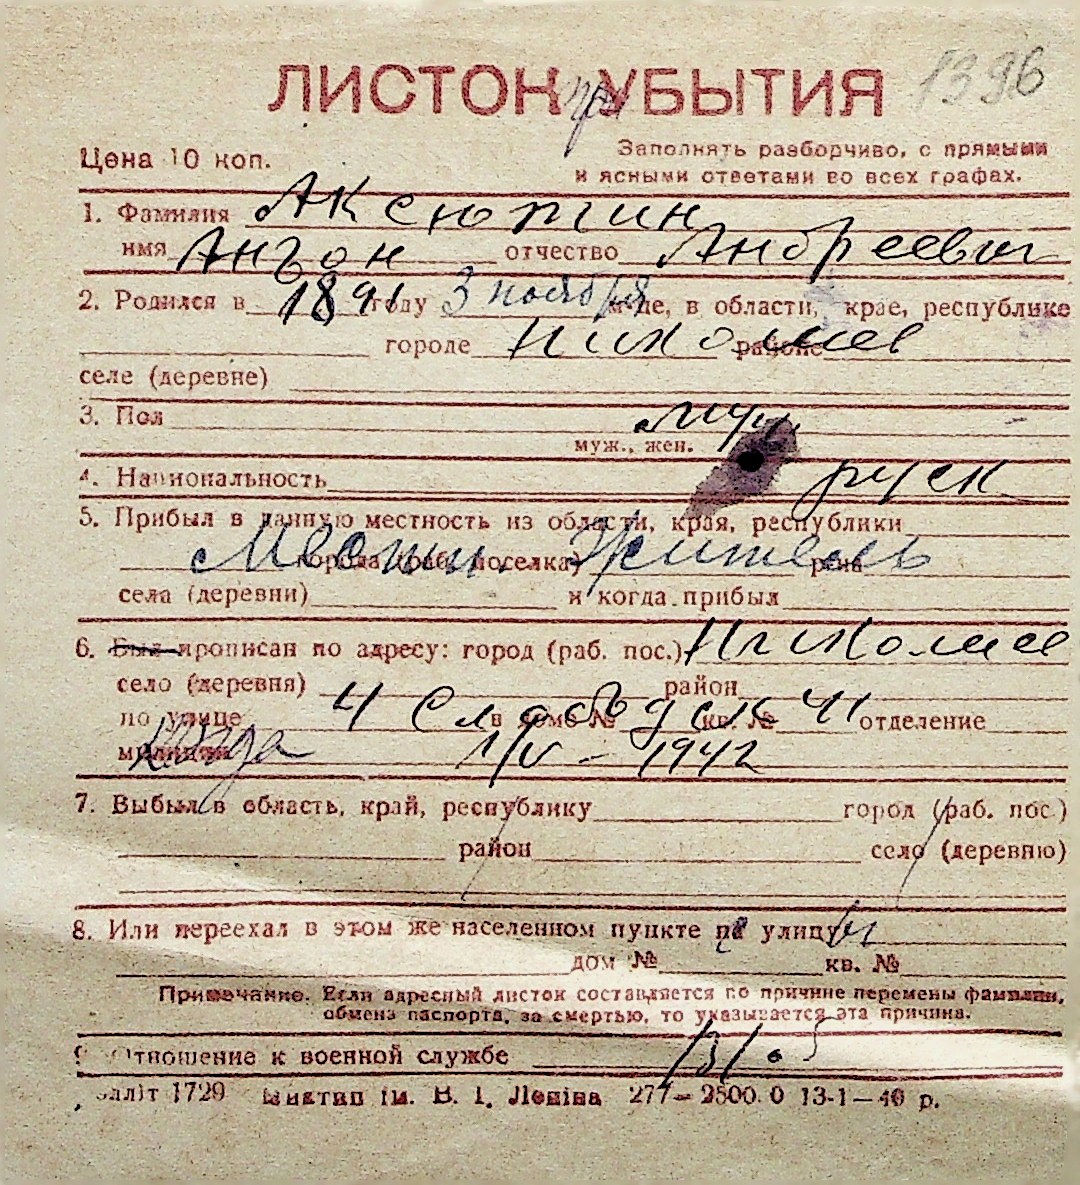 ЛИСТОК УБЫТИЯ 1396
при
Цена 10 коп.
Заполнять разборчиво, с прямыми
и ясными ответами во всех графах.
1. Фамилия Аксютин
имя Антон отчество Андреевич
2. Родился в 1891 году 3 ноября м-це, в области, крае, республике
городе Николаев районе
селе (деревне)
3. Пол муж
муж., жен.
4. Национальность руск
5. Прибыл в данную местность из области, края, республики
Местн. Житель
города (раб. поселка) р-на
села (деревни) и когда прибыл
6. Был прописан по адресу: город (раб. пос.) Николаев
село (деревня) район
по улице 4 Слободск 41 в доме № кв. № отделение
милиции когда 1/V – 1942
7. Выбыл в область, край, республику город (раб. пос.)
район село (деревню)
8. Или переехал в этом же населенном пункте на улицу
дом № кв. №
Примечание. Если адресный листок составляется по причине перемены фамилии,
обмена паспорта, за смертью, то указывается эта причина.
9. Отношение к военной службе
1729 ім. В. І. Леніна 277–2500.0 13-1–40 р.